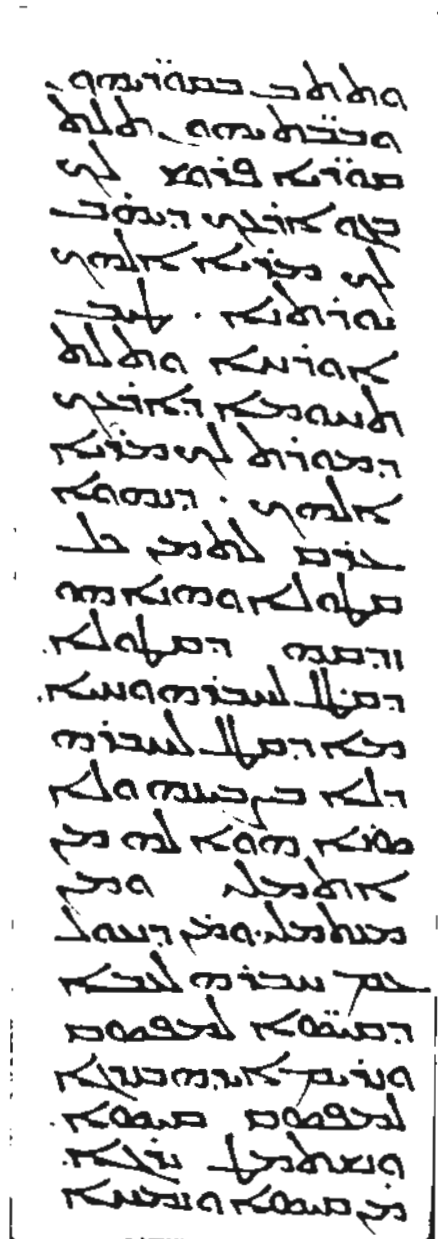 ܘܬܬܒ ܒܩܘܪ̈ܝܗܘܢ
ܘܒܒ̈ܬܝܗܘܢ. ܬܠܬ
ܩܘܪ̈ܝܐ ܦܪܘܫ ܠܟ
ܒܓܘ ܐܪܥܟ ܕܝܗܒ
ܠܟ ܡܪܝܐ ܐܠܗܟ
ܝܘܪܬܢܐ. ܛܝܒ
ܐܘܪܚܐ ܘܬܠܬ
ܬܚܘܡܐ ܕܐܪܥܟ
ܕܡܘܪܬ ܠܟ ܡܪܝܐ
ܐܠܗܟ. ܕܢܗܘܐ
ܥܪܩ ܠܬܡܢ ܟܠ
ܩܛܘܠܐ ܘܗܢܐ ܗܘ
ܙܕܩܗ ܕܩܛܘܠܐ.
ܕܩܛܠ ܠܚܒܪܗ ܘܚܝܐ.
ܡܐ ܕܩܛܠ ܠܚܒܪܗ
ܕܠܐ ܒܨܒܝܢܗ ܘܠܐ
ܣܢܐ ܗܘܐ ܠܗ ܡܢ
ܐܬܡܠ ܘܡܢ
ܡܢܬܡܠ. ܘܡܢ ܕܢܥܘܠ
ܥܡ ܚܒܪܗ ܠܥܒܐ
ܕܩܝ̈ܣܐ ܠܡܦܣܩ
ܘܢܪܝܡ ܐܝܕܗ ܒܢܪܓܐ
ܠܡܦܣܩ ܩܝܣܐ.
ܘܢܫܬܡܛ ܢܪܓܐ
ܡܢ ܩܝܣܐ ܘܢܡܚܐ